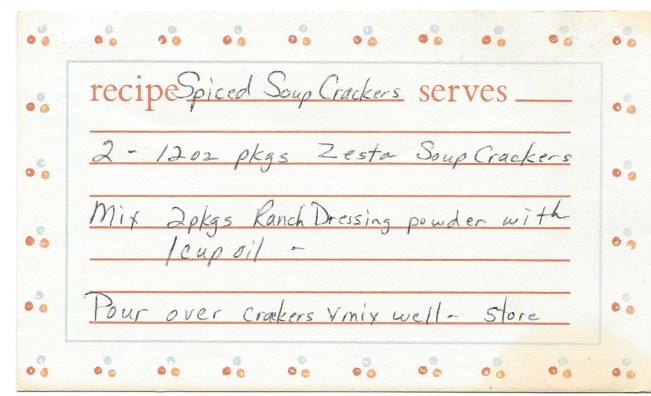 recipe Spiced Soup Crackers serves
2 - 12oz pkgs Zesta Soup Crackers
Mix 2pkgs Ranch Dressing powder with
1 cup oil -
Pour over crackers & mix well - store